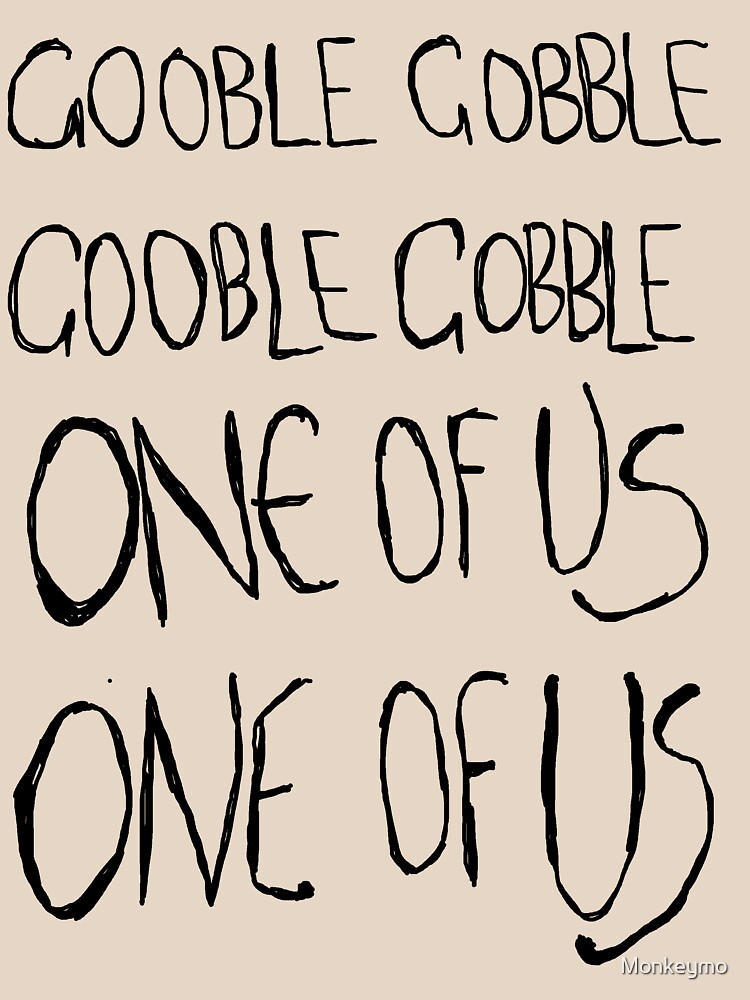 GOOBLE GOBBLE
GOOBLE GOBBLE
ONE OF US
ONE OF US
Monkeymo